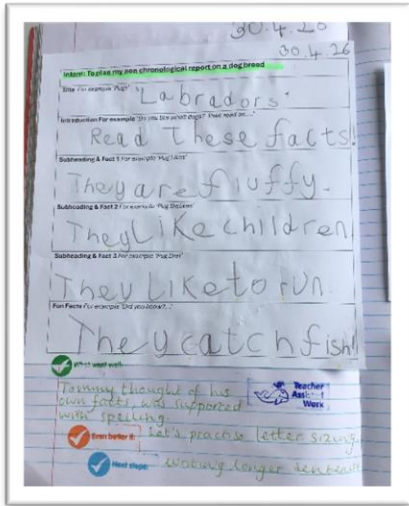 30.4.26
30.4.26
Intent: To plan my non chronological report on a dog breed
Title For example 'Pugs'
'Labradors'
Introduction For example 'Do you like small dogs? Then read on...'
Read These facts!
Subheading & Fact 1 For example 'Pug Facts'
They are fluffy.
Subheading & Fact 2 For example
They Like children
Subheading & Fact 3 For example 'Pug Diet'
They Like to run.
Fun Facts For example 'Did you know?...'
They catch fish!
What went well:
Teacher
Assisted
Work
Tommy thought of his
own facts, was supported
with spelling
Even better if: Let's practise letter sizing.
Next steps: writing longer sentences